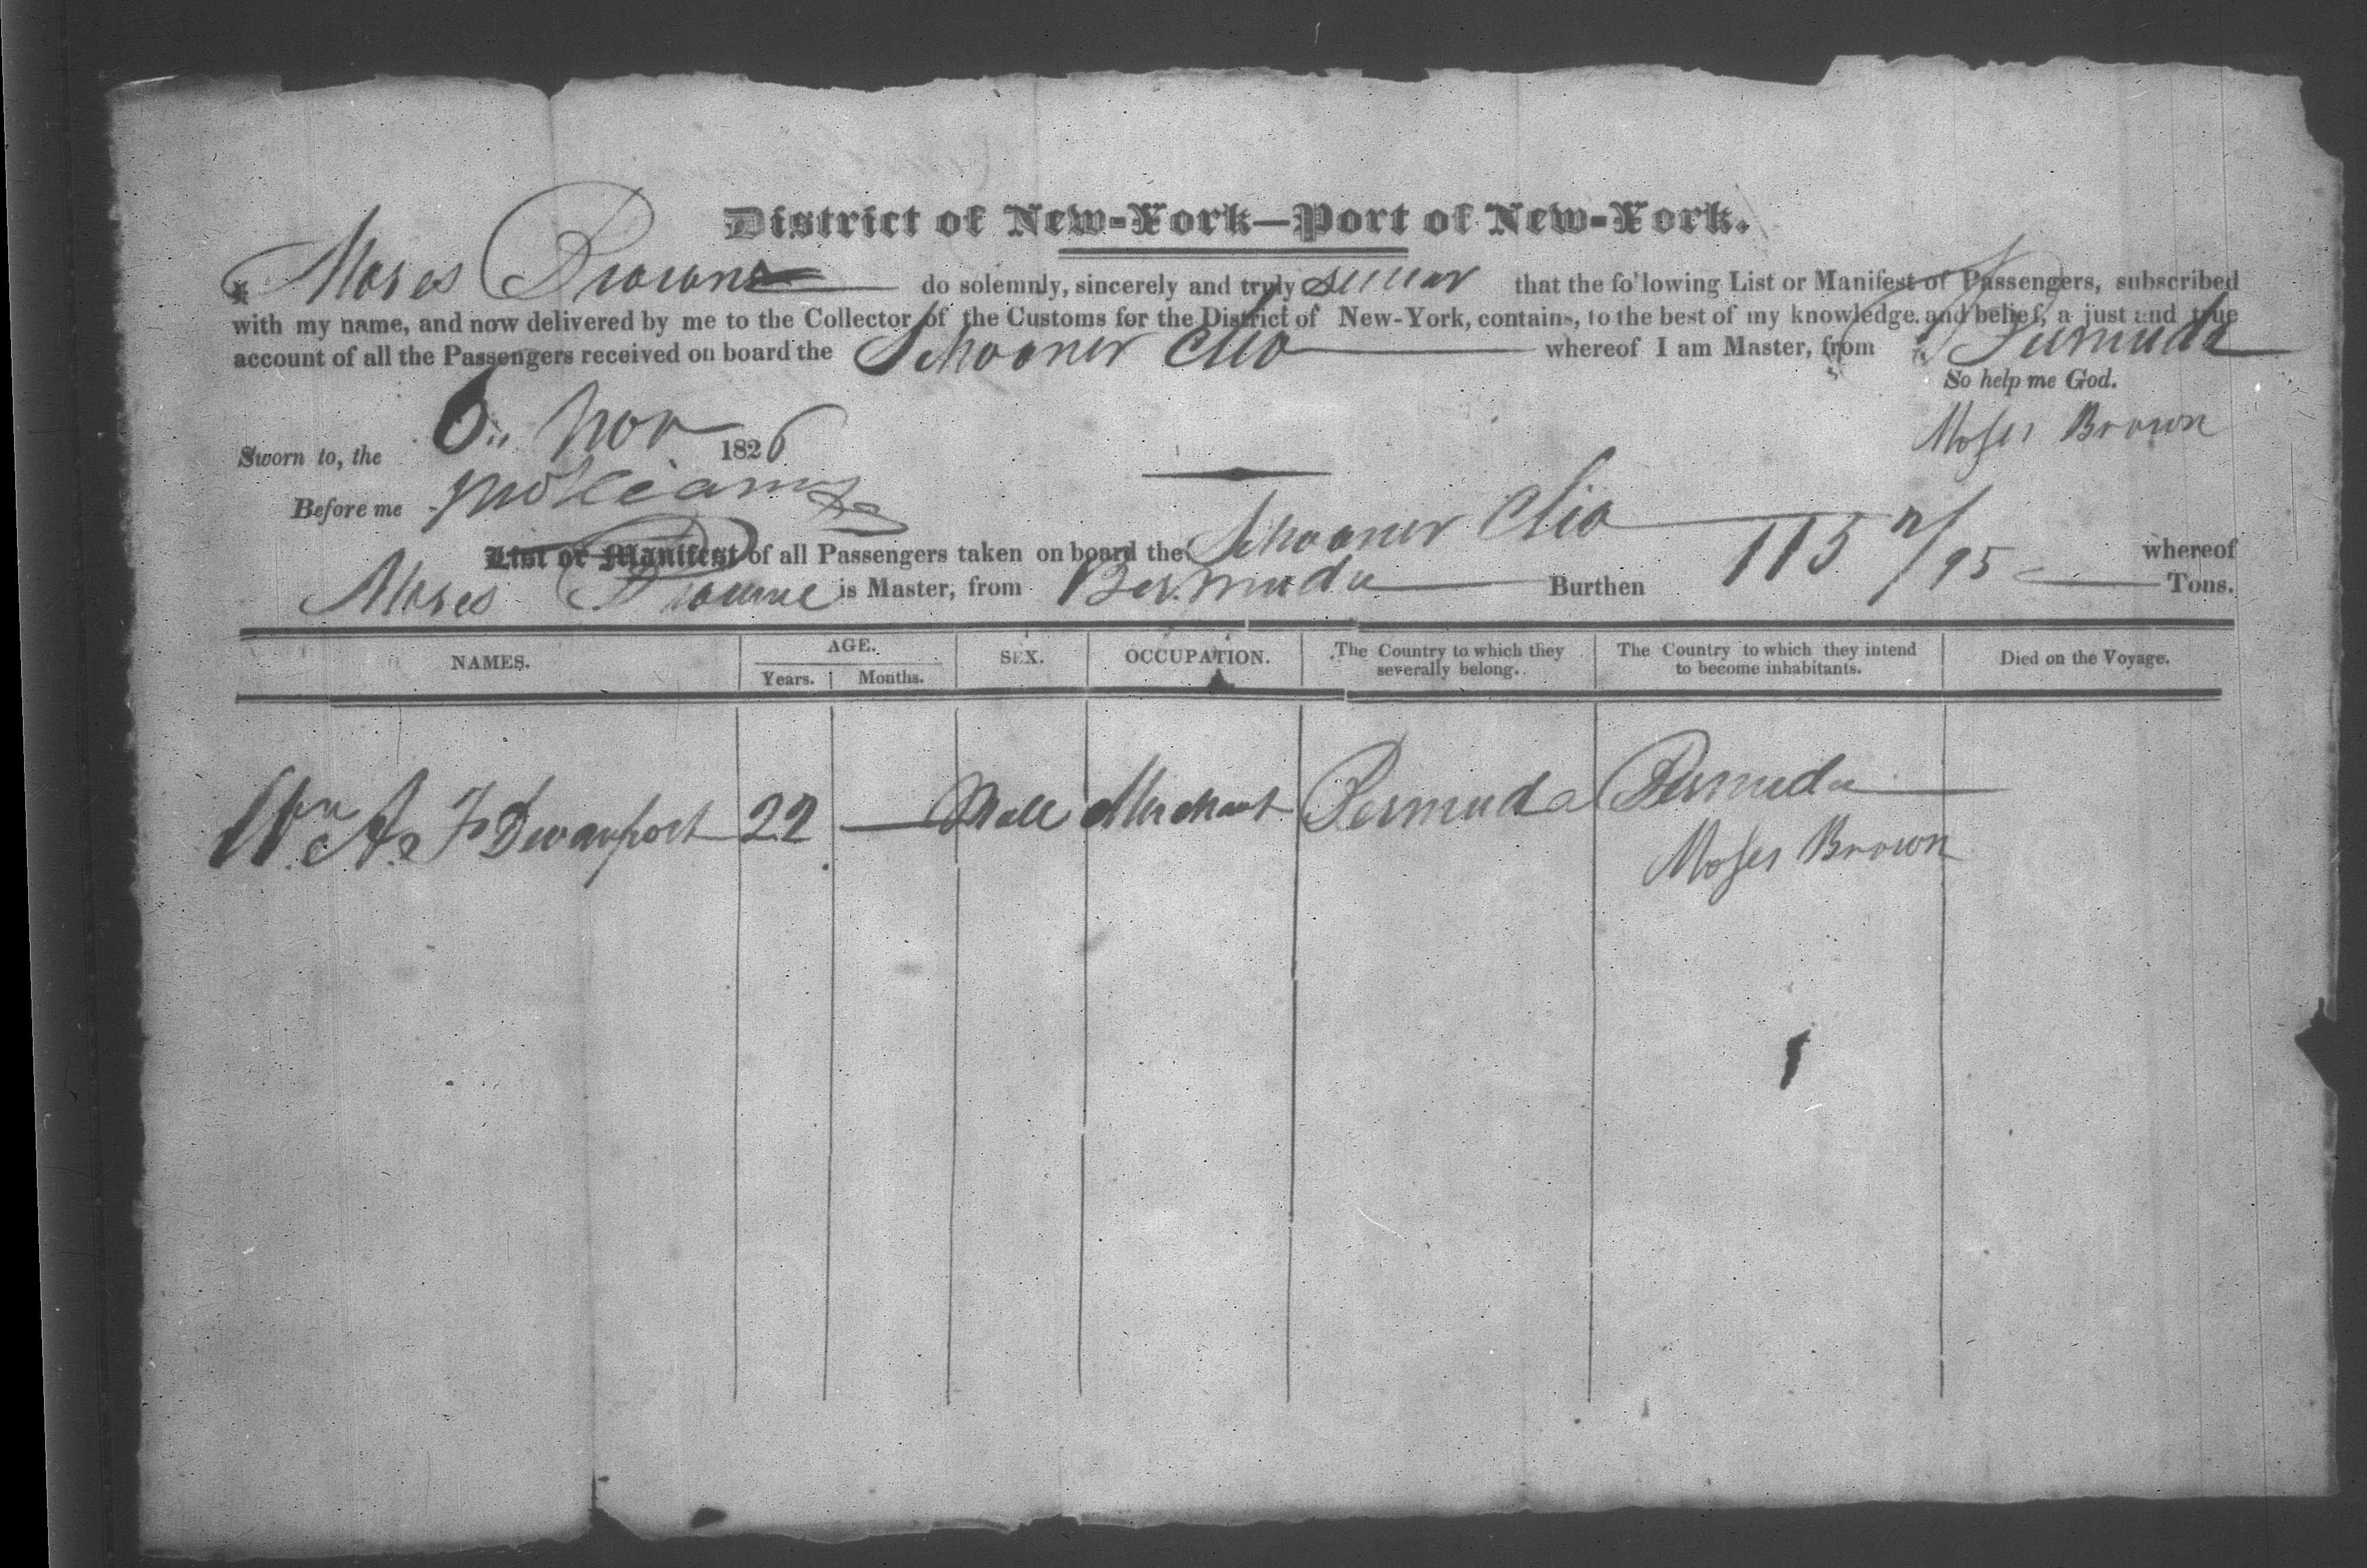 District of New-York—Port of New-York.
I Moses Browne do solemnly, sincerely and truly swear that the following List or Manifest of Passengers, subscribed
with my name, and now delivered by me to the Collector of the Customs for the District of New-York, contains, to the best of my knowledge and belief, a just and true
account of all the Passengers received on board the Schooner Clio whereof I am Master, from Bermuda
So help me God.
Sworn to, the 6 Nov 1826
Moses Brown
Before me
List or Manifest of all Passengers taken on board the Schooner Clio whereof
Moses Browne is Master, from Bermuda Burthen 115 /95 Tons.
NAMES. AGE. Years. Months. SEX. OCCUPATION. The Country to which they severally belong. The Country to which they intend to become inhabitants. Died on the Voyage.
Wm A. F Devanport 22 — Male Merchant Bermuda Bermuda
Moses Brown